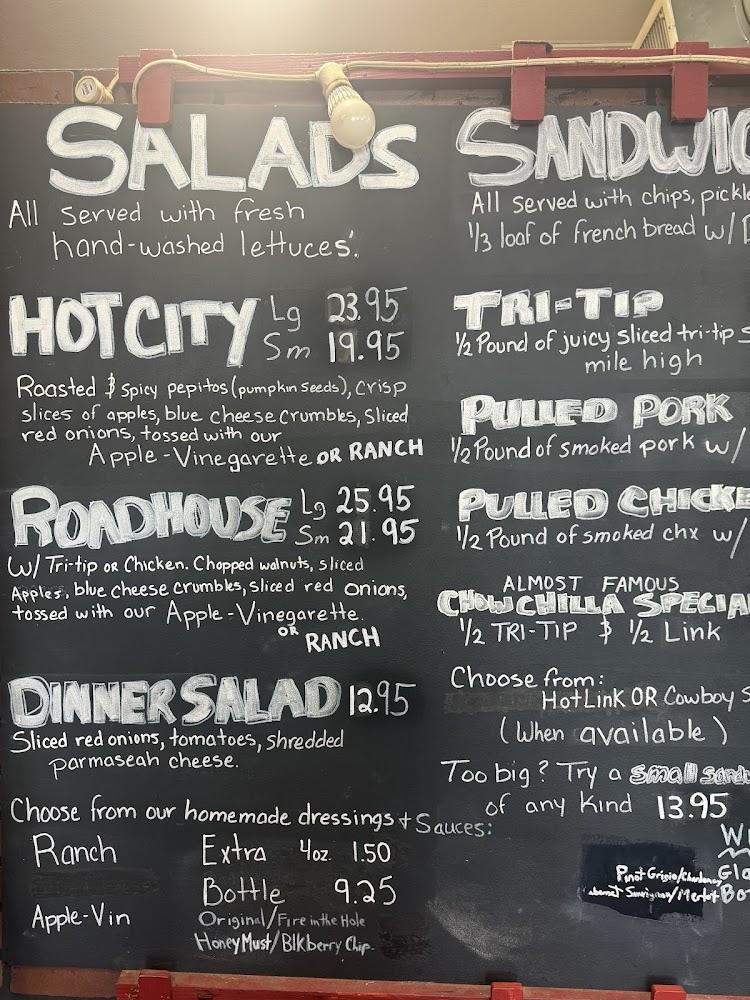 SALADS
All served with fresh
hand-washed lettuces.
HOT CITY Lg 23.95
Sm 19.95
Roasted & Spicy pepitos (pumpkin seeds), crisp
slices of apples, blue cheese crumbles, sliced
red onions, tossed with our
Apple-Vinegarette OR RANCH
ROADHOUSE Lg 25.95
Sm 21.95
W/ Tri-tip OR Chicken. Chopped walnuts, sliced
Apples, blue cheese crumbles, sliced red onions,
tossed with our Apple-Vinegarette.
OR RANCH
DINNER SALAD 12.95
Sliced red onions, tomatoes, shredded
parmaseah cheese.
Choose from our homemade dressings + Sauces:
Ranch Extra 4oz. 1.50
Bottle 9.25
Apple-Vin Original/Fire in the Hole
Honey Must/Blkberry Chip.
SANDWIC
All served with chips, pickle
1/3 loaf of french bread w/
TRI-TIP
1/2 Pound of juicy sliced tri-tip s
mile high
PULLED PORK
1/2 Pound of smoked pork w/
PULLED CHICKE
1/2 Pound of smoked chx w/
ALMOST FAMOUS
CHOWCHILLA SPECIA
1/2 TRI-TIP & 1/2 Link
Choose from:
Hot Link OR Cowboy S
(When available)
Too big? Try a small sand
of any kind 13.95
WI
Pinot Grigio/Chardonnay Gla
Cabernet Sauvignon/Merlot Bo